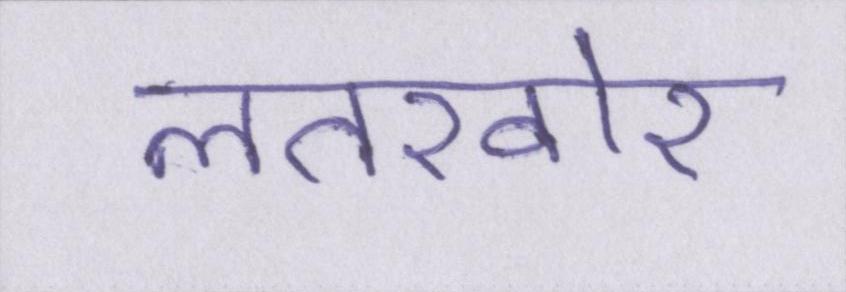 लतखोर